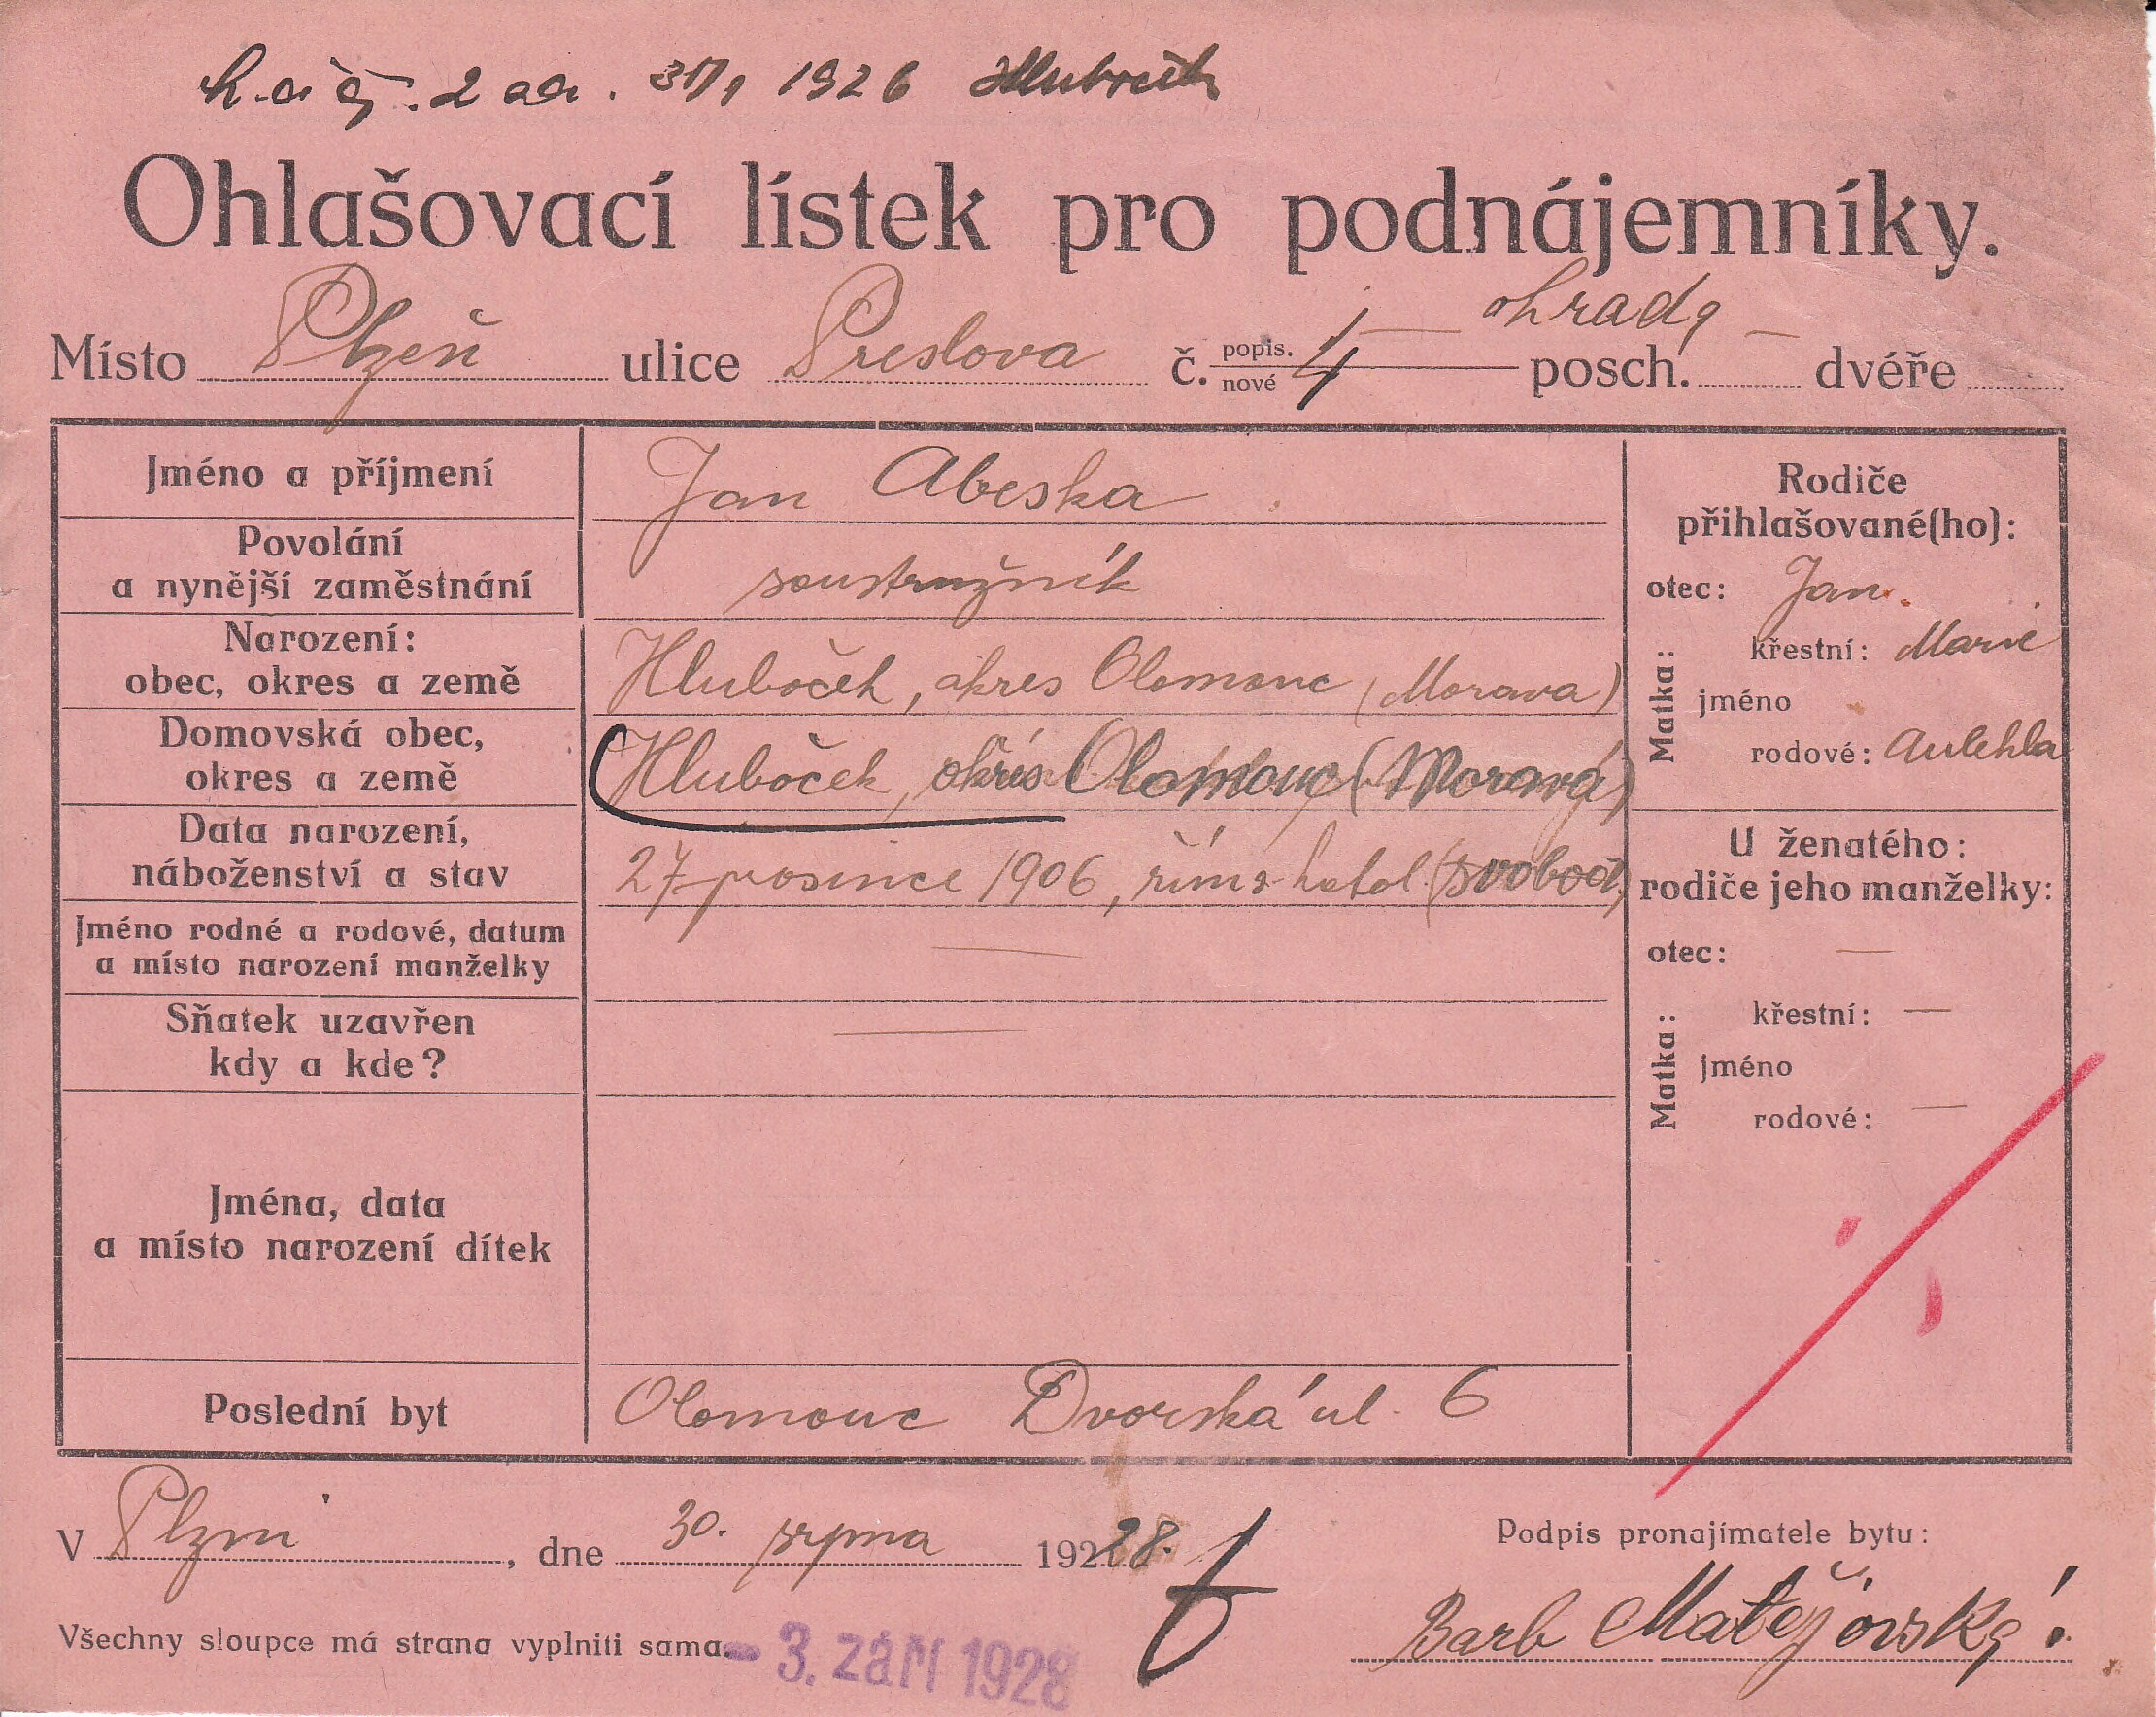 2 31/1 1926 Hluboček
Ohlašovací lístek pro podnájemníky.
Místo Plzeň ulice Preslova č. popis. nové 4 — ohrada — posch. dvéře
Jméno a příjmení Jan Abeska
Povolání
a nynější zaměstnání soustružník
Narození:
obec, okres a země Hluboček, okres Olomouc (Morava)
Domovská obec,
okres a země Hluboček, okres Olomouc (Morava)
Data narození,
náboženství a stav 27 prosince 1906, řims-katol. (svobod.)
Jméno rodné a rodové, datum
a místo narození manželky —
Sňatek uzavřen
kdy a kde? —
Jména, data
a místo narození dítek
Poslední byt Olomouc Dvorská ul. 6
Rodiče
přihlašované(ho):
otec: Jan.
Matka:
křestní: Marie
jméno
rodové: Aulehla
U ženatého:
rodiče jeho manželky:
otec: —
Matka:
křestní: —
jméno
rodové: —
V Plzni, dne 30. srpna 1928.
Podpis pronajímatele bytu:
Barb Matějovská
Všechny sloupce má strana vyplniti sama.
- 3. ZÁŘÍ 1928